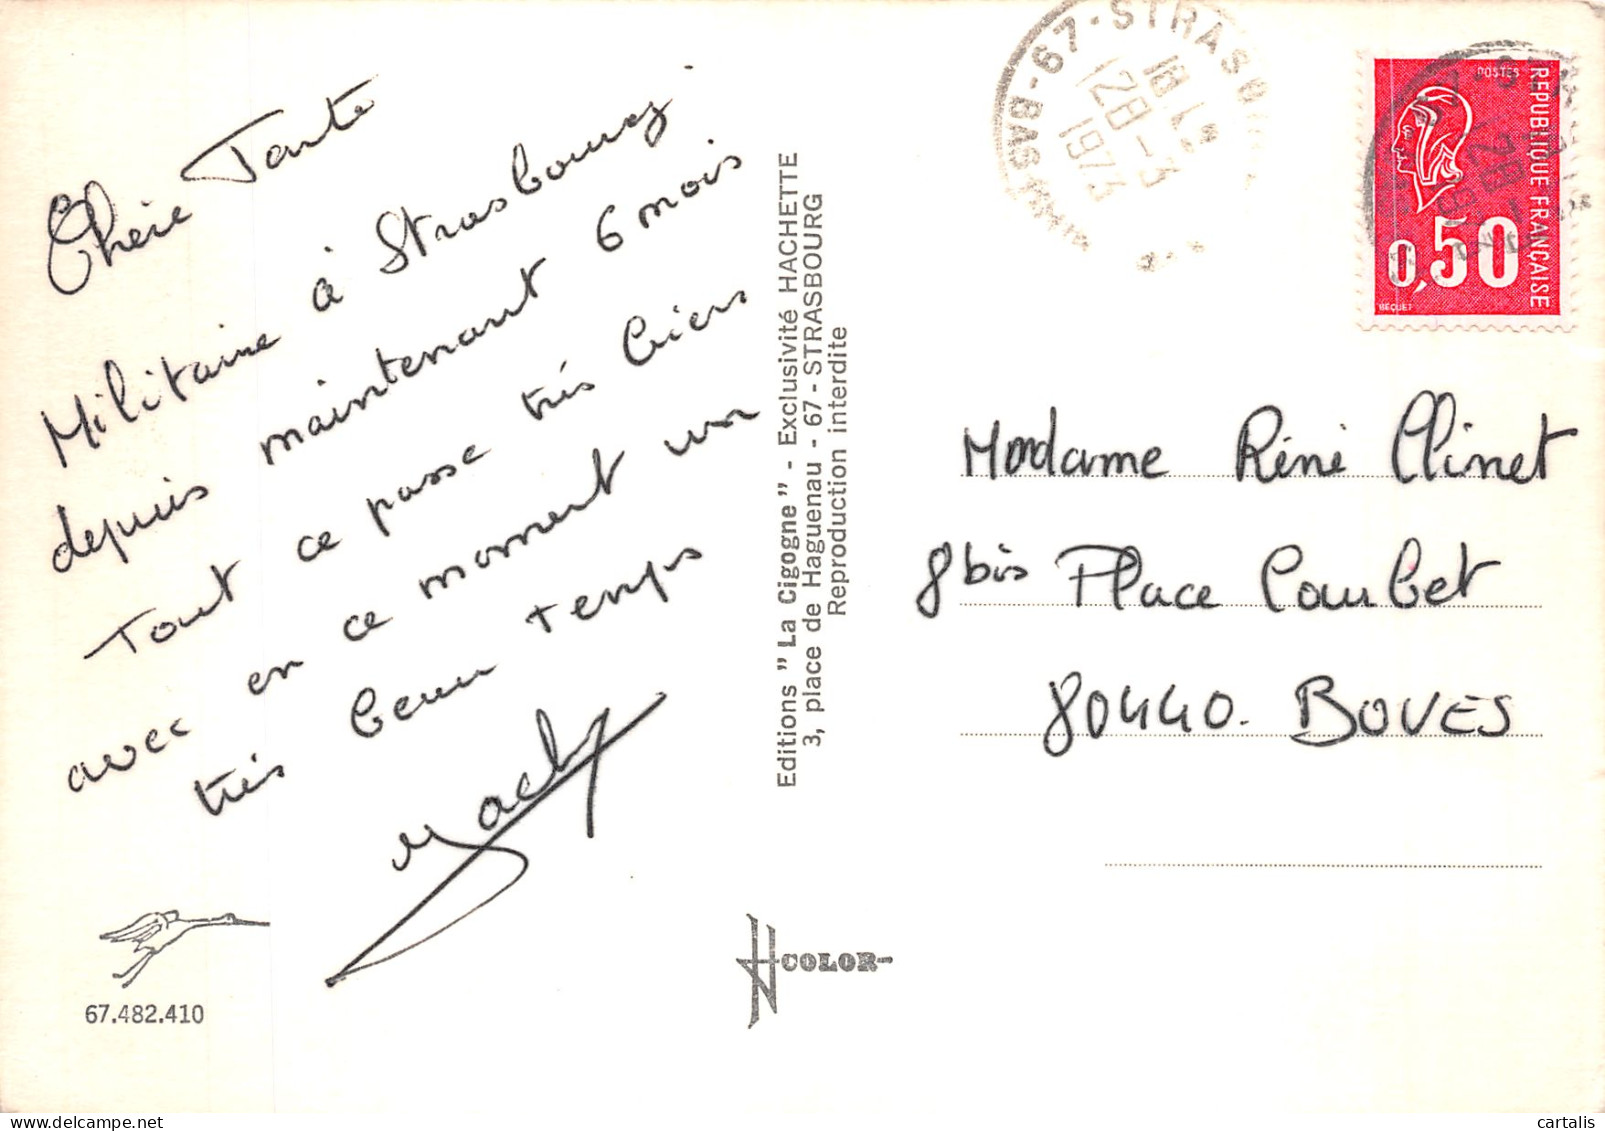 Chère Tante
Militaire à Strasbourg
depuis maintenant 6 mois
Tout ce passe très bien
avec en ce moment un
très beau temps
67.482.410
Editions "La Cigogne" - Exclusivité HACHETTE
3, place de Haguenau - 67 - STRASBOURG
Reproduction interdite
COLOR
67 - STRASBOURG
18 H
28 - 3
1973
POSTES
REPUBLIQUE FRANÇAISE
0,50
BEQUET
Madame Réné Clinet
8bis Place Combet
80440. BOVES
cartalis
www.delcampe.net